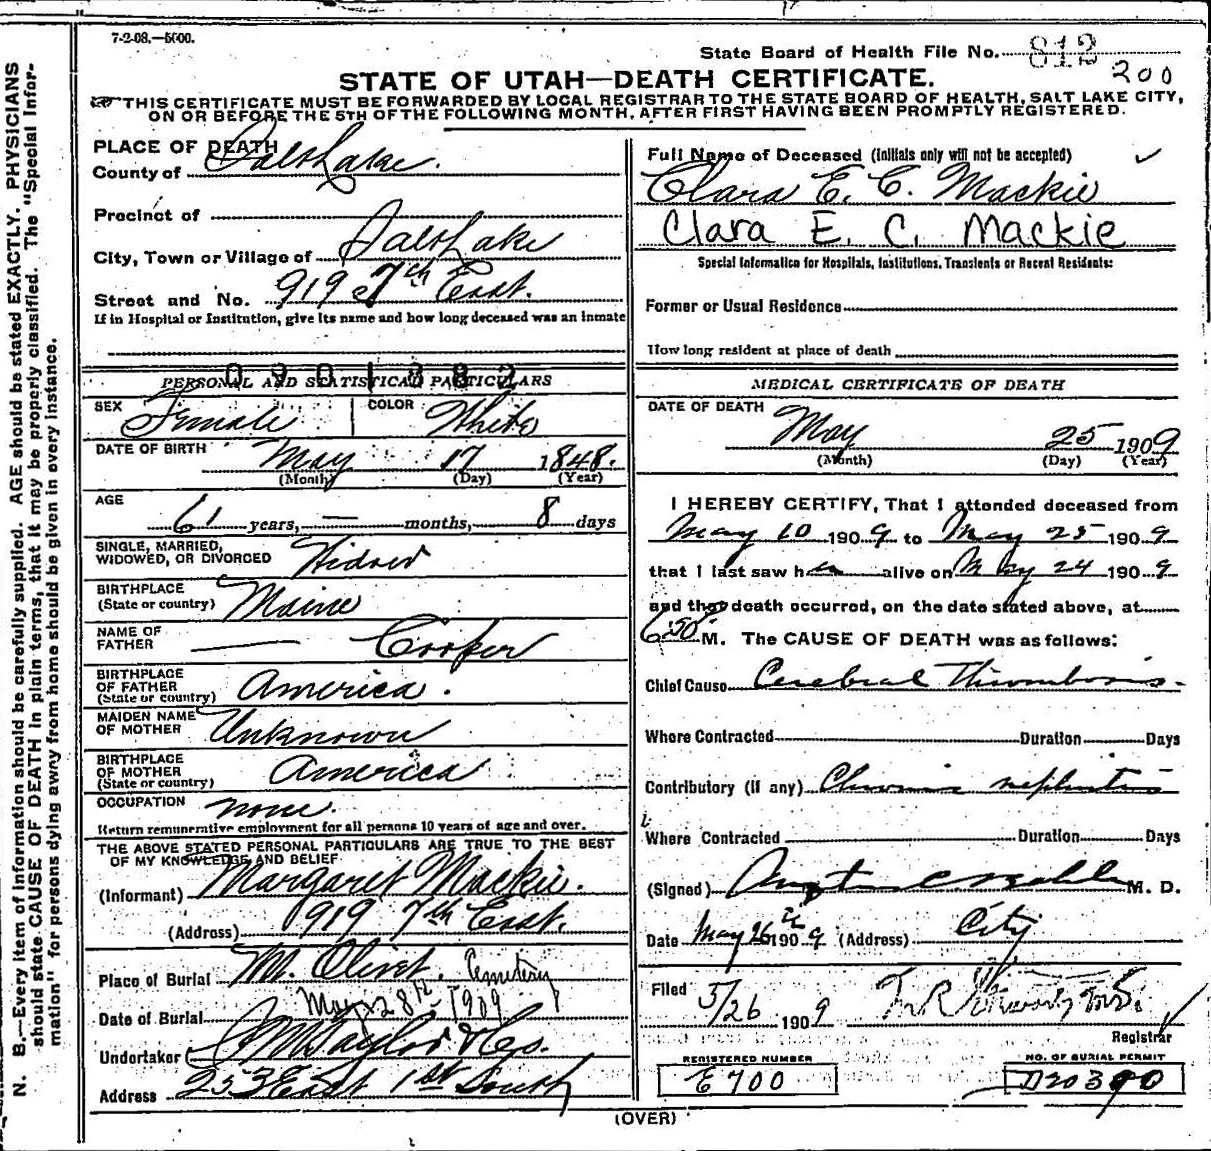 7-2-08.—5000.
State Board of Health File No. 813
200
STATE OF UTAH—DEATH CERTIFICATE.
THIS CERTIFICATE MUST BE FORWARDED BY LOCAL REGISTRAR TO THE STATE BOARD OF HEALTH, SALT LAKE CITY,
ON OR BEFORE THE 5TH OF THE FOLLOWING MONTH, AFTER FIRST HAVING BEEN PROMPTLY REGISTERED.
N. B.—Every item of information should be carefully supplied. AGE should be stated EXACTLY. PHYSICIANS
should state CAUSE OF DEATH in plain terms, that it may be properly classified. The "Special Infor-
mation" for persons dying away from home should be given in every instance.
PLACE OF DEATH
County of Salt Lake.
Precinct of
City, Town or Village of Salt Lake
Street and No. 919 S 7th East.
If in Hospital or Institution, give its name and how long deceased was an inmate
0901382
PERSONAL AND STATISTICAL PARTICULARS
SEX Female COLOR White
DATE OF BIRTH May 17 1848.
(Month) (Day) (Year)
AGE
61 years, — months, 8 days
SINGLE, MARRIED,
WIDOWED, OR DIVORCED Widow
BIRTHPLACE
(State or country) Maine
NAME OF
FATHER — Cooper
BIRTHPLACE
OF FATHER
(State or country) America.
MAIDEN NAME
OF MOTHER Unknown
BIRTHPLACE
OF MOTHER
(State or country) America
OCCUPATION none.
Return remunerative employment for all persons 10 years of age and over.
THE ABOVE STATED PERSONAL PARTICULARS ARE TRUE TO THE BEST
OF MY KNOWLEDGE AND BELIEF
(Informant) Margaret Mackie.
(Address) 919 7th East.
Place of Burial Mt. Olivet. Cemetery
Date of Burial May 28th 1909
Undertaker Taylor & Co.
Address 253 East 1st South
Full Name of Deceased (Initials only will not be accepted)
Clara E. C. Mackie
Clara E. C. Mackie
Special Information for Hospitals, Institutions, Transients or Recent Residents:
Former or Usual Residence
How long resident at place of death
MEDICAL CERTIFICATE OF DEATH
DATE OF DEATH
May 25 1909
(Month) (Day) (Year)
I HEREBY CERTIFY, That I attended deceased from
May 10 1909 to May 25 1909
that I last saw her alive on May 24 1909
and that death occurred, on the date stated above, at
6:50 M. The CAUSE OF DEATH was as follows:
Chief Cause Cerebral Thrombosis.
Where Contracted Duration Days
Contributory (if any) Chronic nephritis
Where Contracted Duration Days
(Signed) M. D.
Date May 26th 1909 (Address) City
Filed 5/26 1909
Registrar
REGISTERED NUMBER
E 700
NO. OF BURIAL PERMIT
D20390
(OVER)